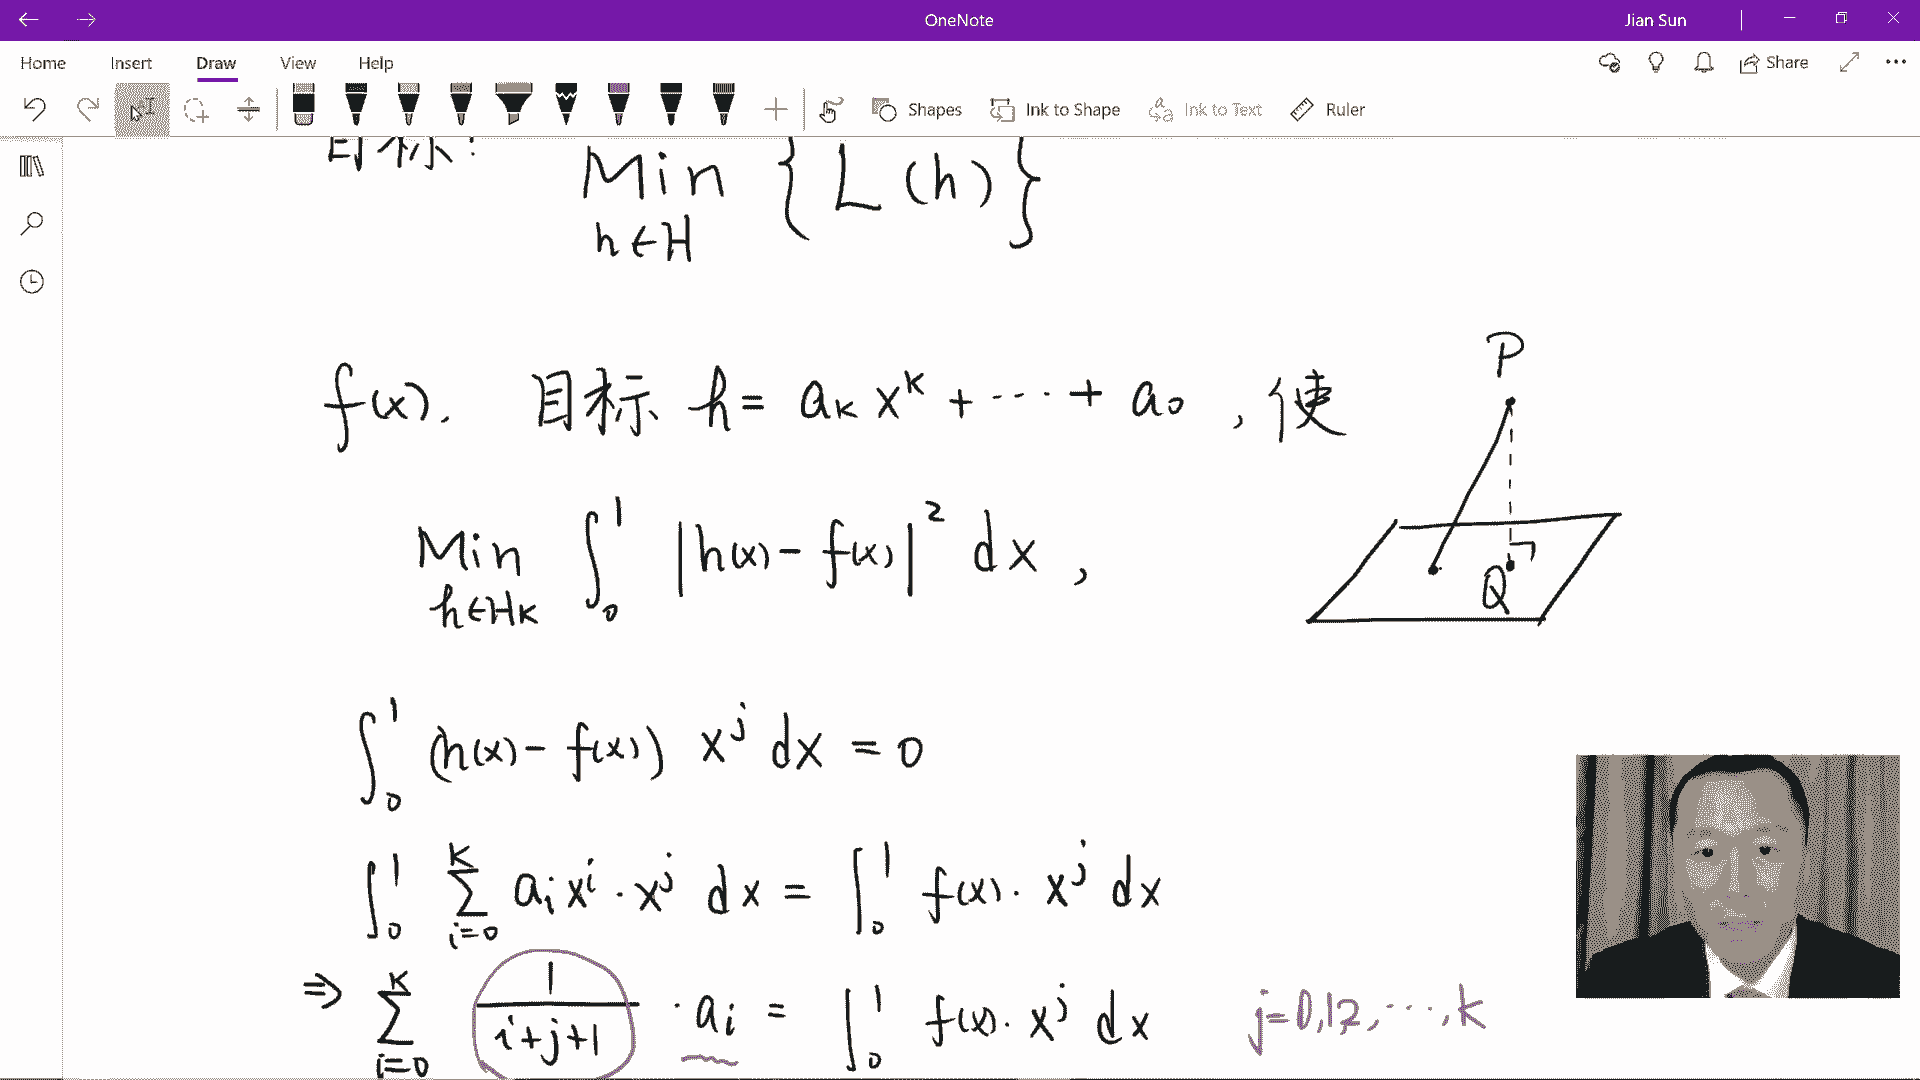 OneNote
Jian Sun
Home Insert Draw View Help
Share
Shapes Ink to Shape Ink to Text Ruler
目标:
Min { L(h) }
h∈H
f(x). 目标 h = a_k x^k + ··· + a_0 , 使
Min ∫_0^1 |h(x) - f(x)|^2 dx ,
h∈H_k
P
Q
∫_0^1 (h(x) - f(x)) x^j dx = 0
∫_0^1 ∑_{i=0}^k a_i x^i · x^j dx = ∫_0^1 f(x) · x^j dx
⇒ ∑_{i=0}^k 1/(i+j+1) · a_i = ∫_0^1 f(x) · x^j dx j=0,1,2,···,k